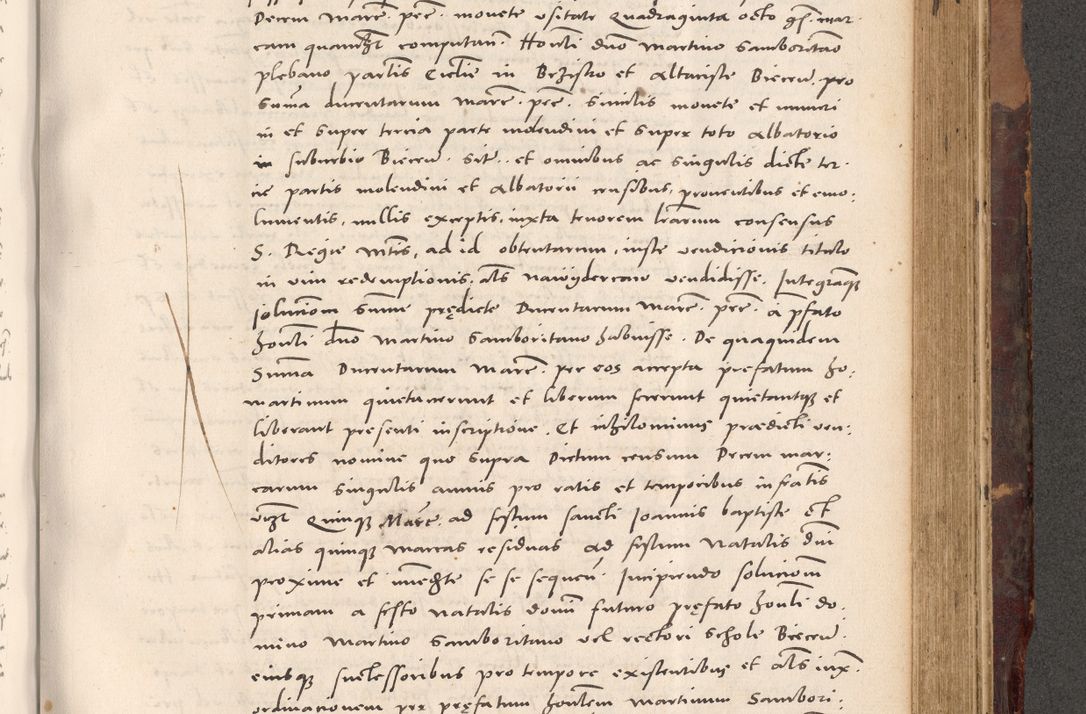 Decem marc. pec. monete usitate Quadraginta octo gl. mar-
cam quamlibet computan. Honli dno Martino Samboritano
plebano partis Ecclie in Bezistro et altariste Biecen. pro
Suma ducentarum marc. pec. similis monete et numeri
in et super tercia parte molendini et super toto albatorio
in suburbio Biecen. sit. et omnibus ac singulis dicte ter-
cie partis molendini et albatorii censibus, proventibus et emo-
limentis, nullis exceptis, iuxta tenorem lrarum consensus
S. Regie Mtis, ad id obtentarum, iuste vendicionis titulo
in vim redemptionis, als nawyderkaw vendidisse. Integramque
solucionem summe prędicte Ducentarum marc. pec. à pfato
honli dno Martino Samboritano habuisse. De quaquidem
Summa Ducentarum marc. per eos accepta prefatum ho-
Martinum quietaverunt et liberum fecerunt quietantque et
liberant presenti inscriptione. Et nihilominus prædicti ven-
ditores nomine quo supra Dictum censum Decem mar-
carum singulis annis pro ratis et temporibus infratis
vizt Quinque Marc. ad festum sancti Joannis baptiste et
alias quinque marcas residuas ad festum Natalis dni
proxime et immedte se se sequen. Incipiendo solucionem
primam a festo natalis domini futuro pręfato honli do-
mino Martino Samboritano vel rectori schole Biecen.
eiusque successoribus pro tempore existentibus et als iux.
ordinacionem per pręfatum honlem Martinum Sambori-